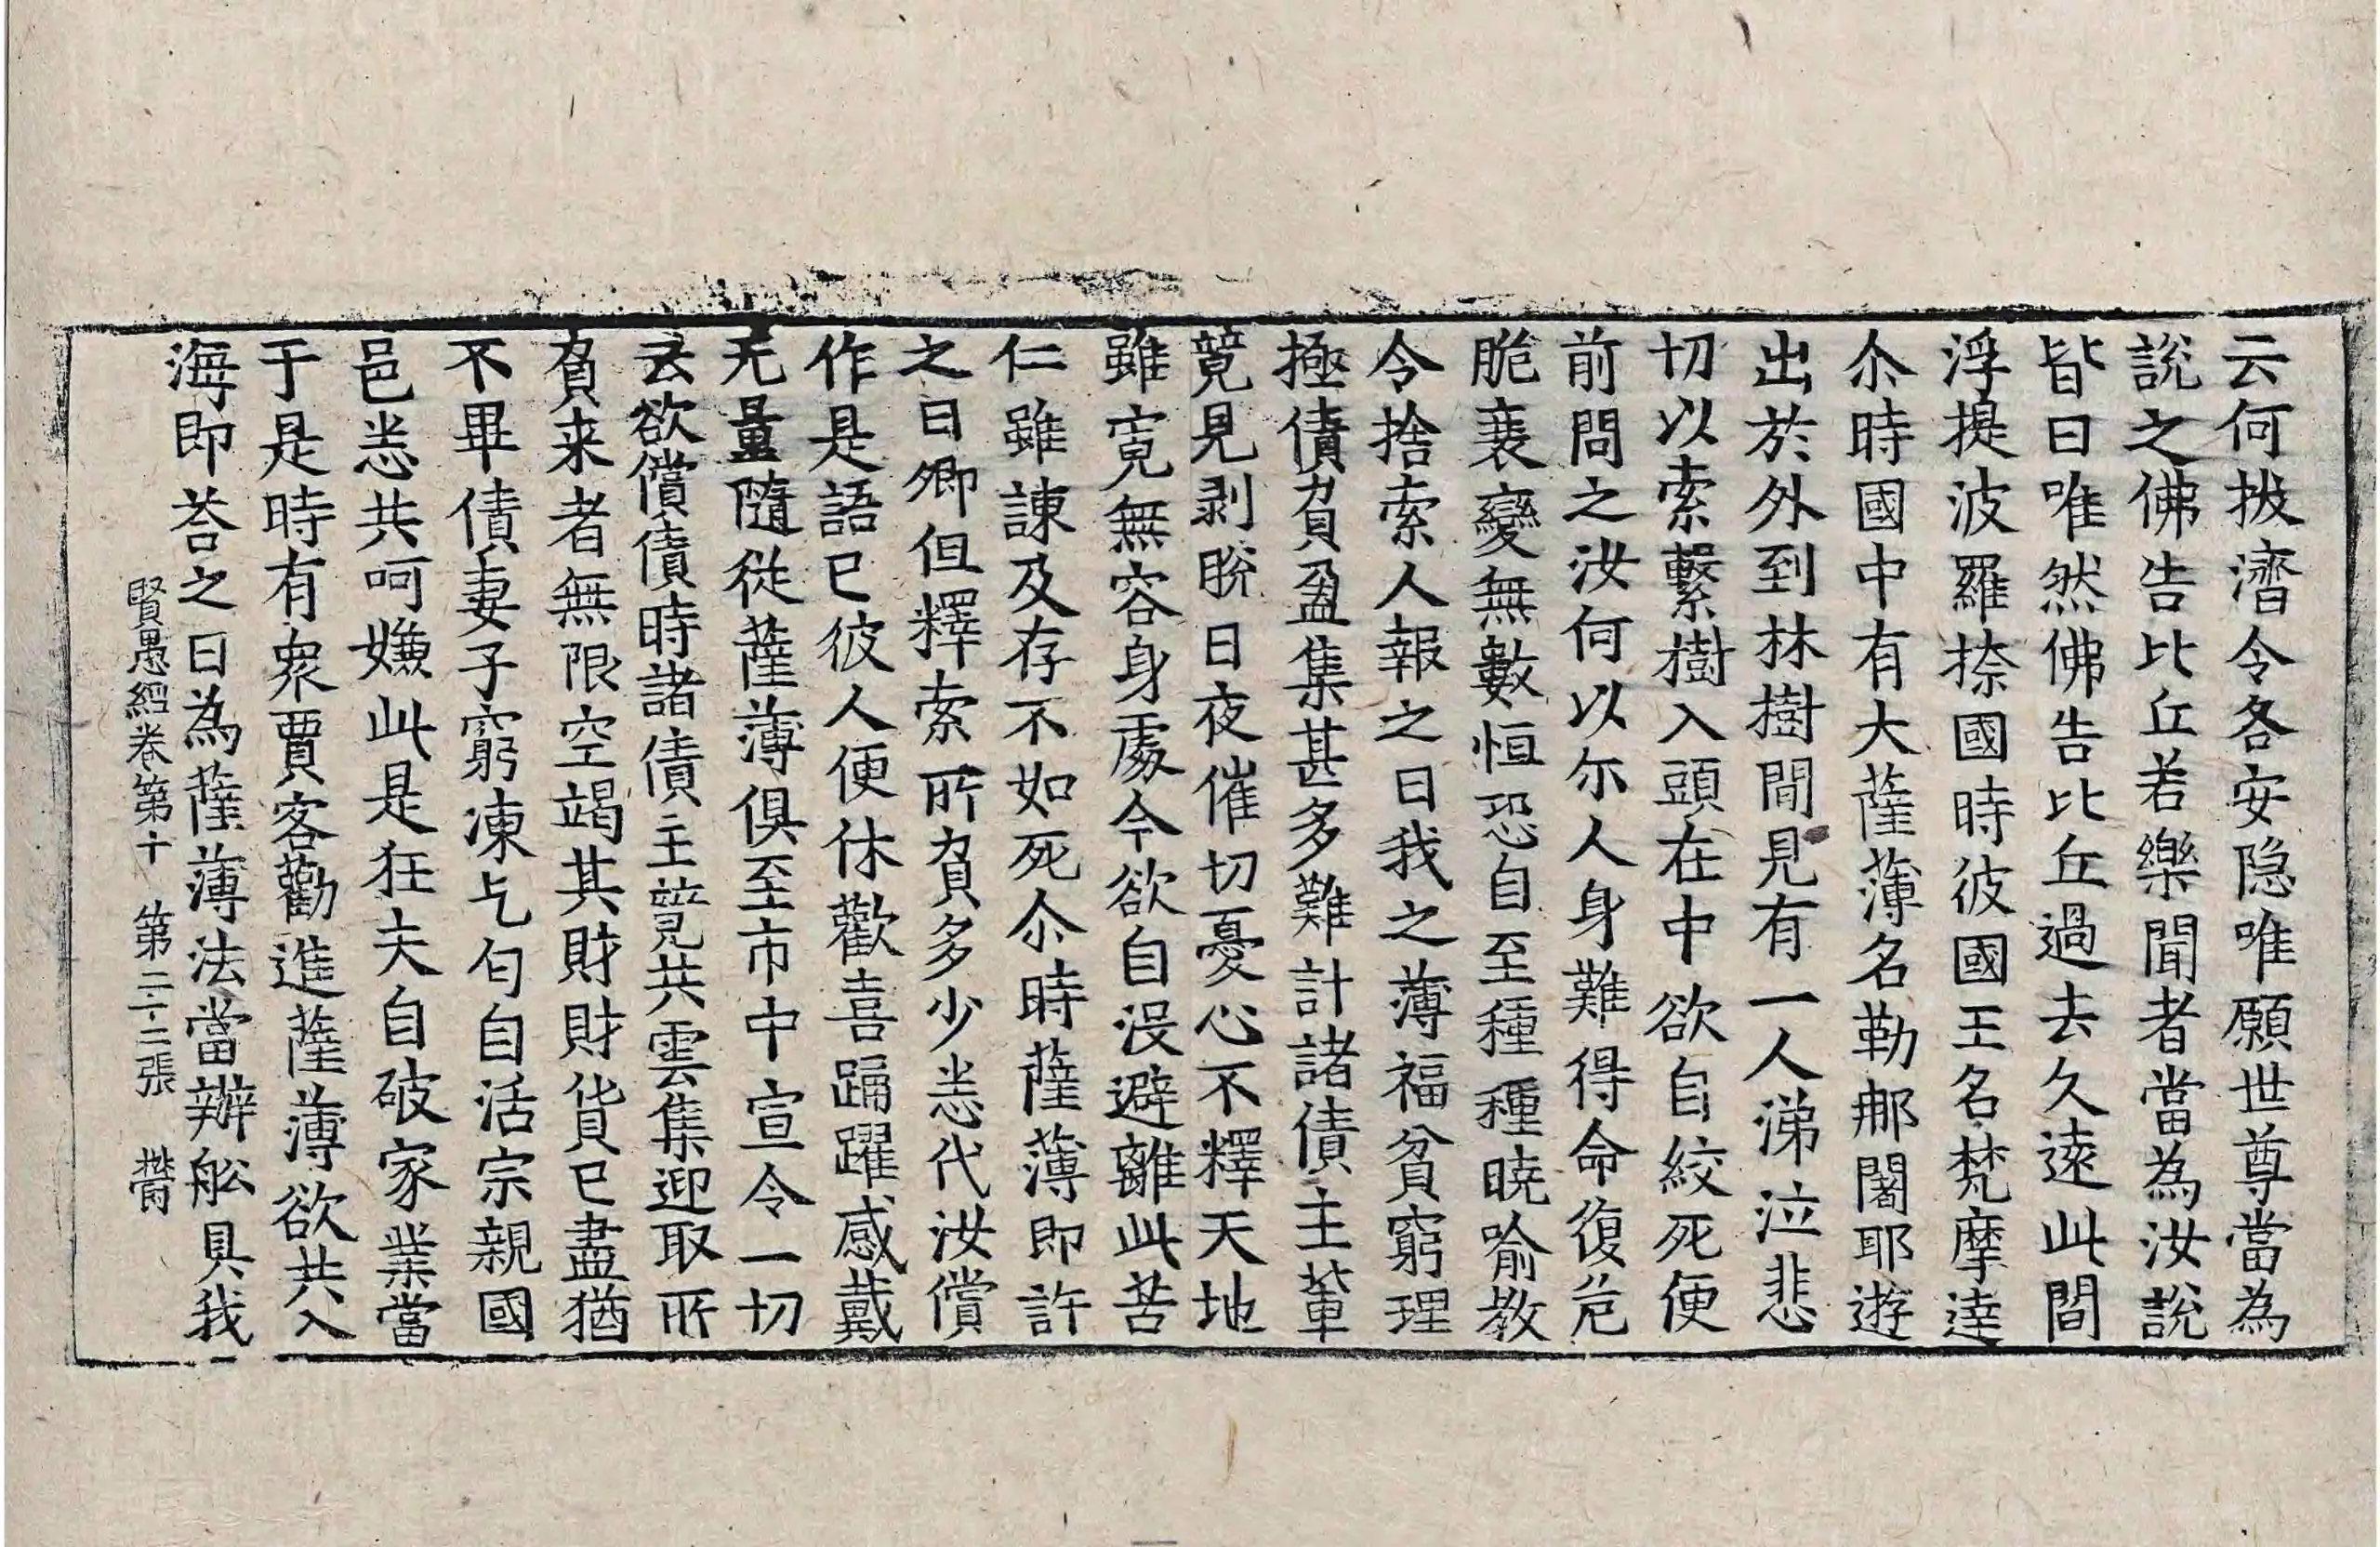 云何拔濟令各安隐唯願世尊當為
說之佛告比丘若樂聞者當為汝說
皆曰唯然佛告比丘過去久遠此閻
浮提波羅捺國時彼國王名梵摩達
尒時國中有大薩薄名勒那闍耶遊
出於外到林樹間見有一人涕泣悲
切以索繫樹入頭在中欲自絞死便
前問之汝何以尔人身難得命復危
脆衰變無數恒恐自至種種曉喻教
令捨索人報之曰我之薄福貧窮理
極債負盈集甚多難計諸債主輩
競見剥脫日夜催切憂心不釋天地
雖寬無容身處今欲自沒避離此苦
仁雖諫及存不如死尒時薩薄即許
之曰卿但釋索所負多少悉代汝償
作是語已彼人便休歡喜踊躍感戴
无量隨從薩薄俱至市中宣令一切
云欲償債時諸債主競共雲集迎取所
負来者無限空竭其財財貨已盡猶
不畢債妻子窮凍乞匄自活宗親國
邑悉共呵嫌此是狂夫自破家業當
于是時有衆賈客勸進薩薄欲共入
海即荅之曰為薩薄法當辦舩具我
賢愚經卷第十　第二十二張　欝